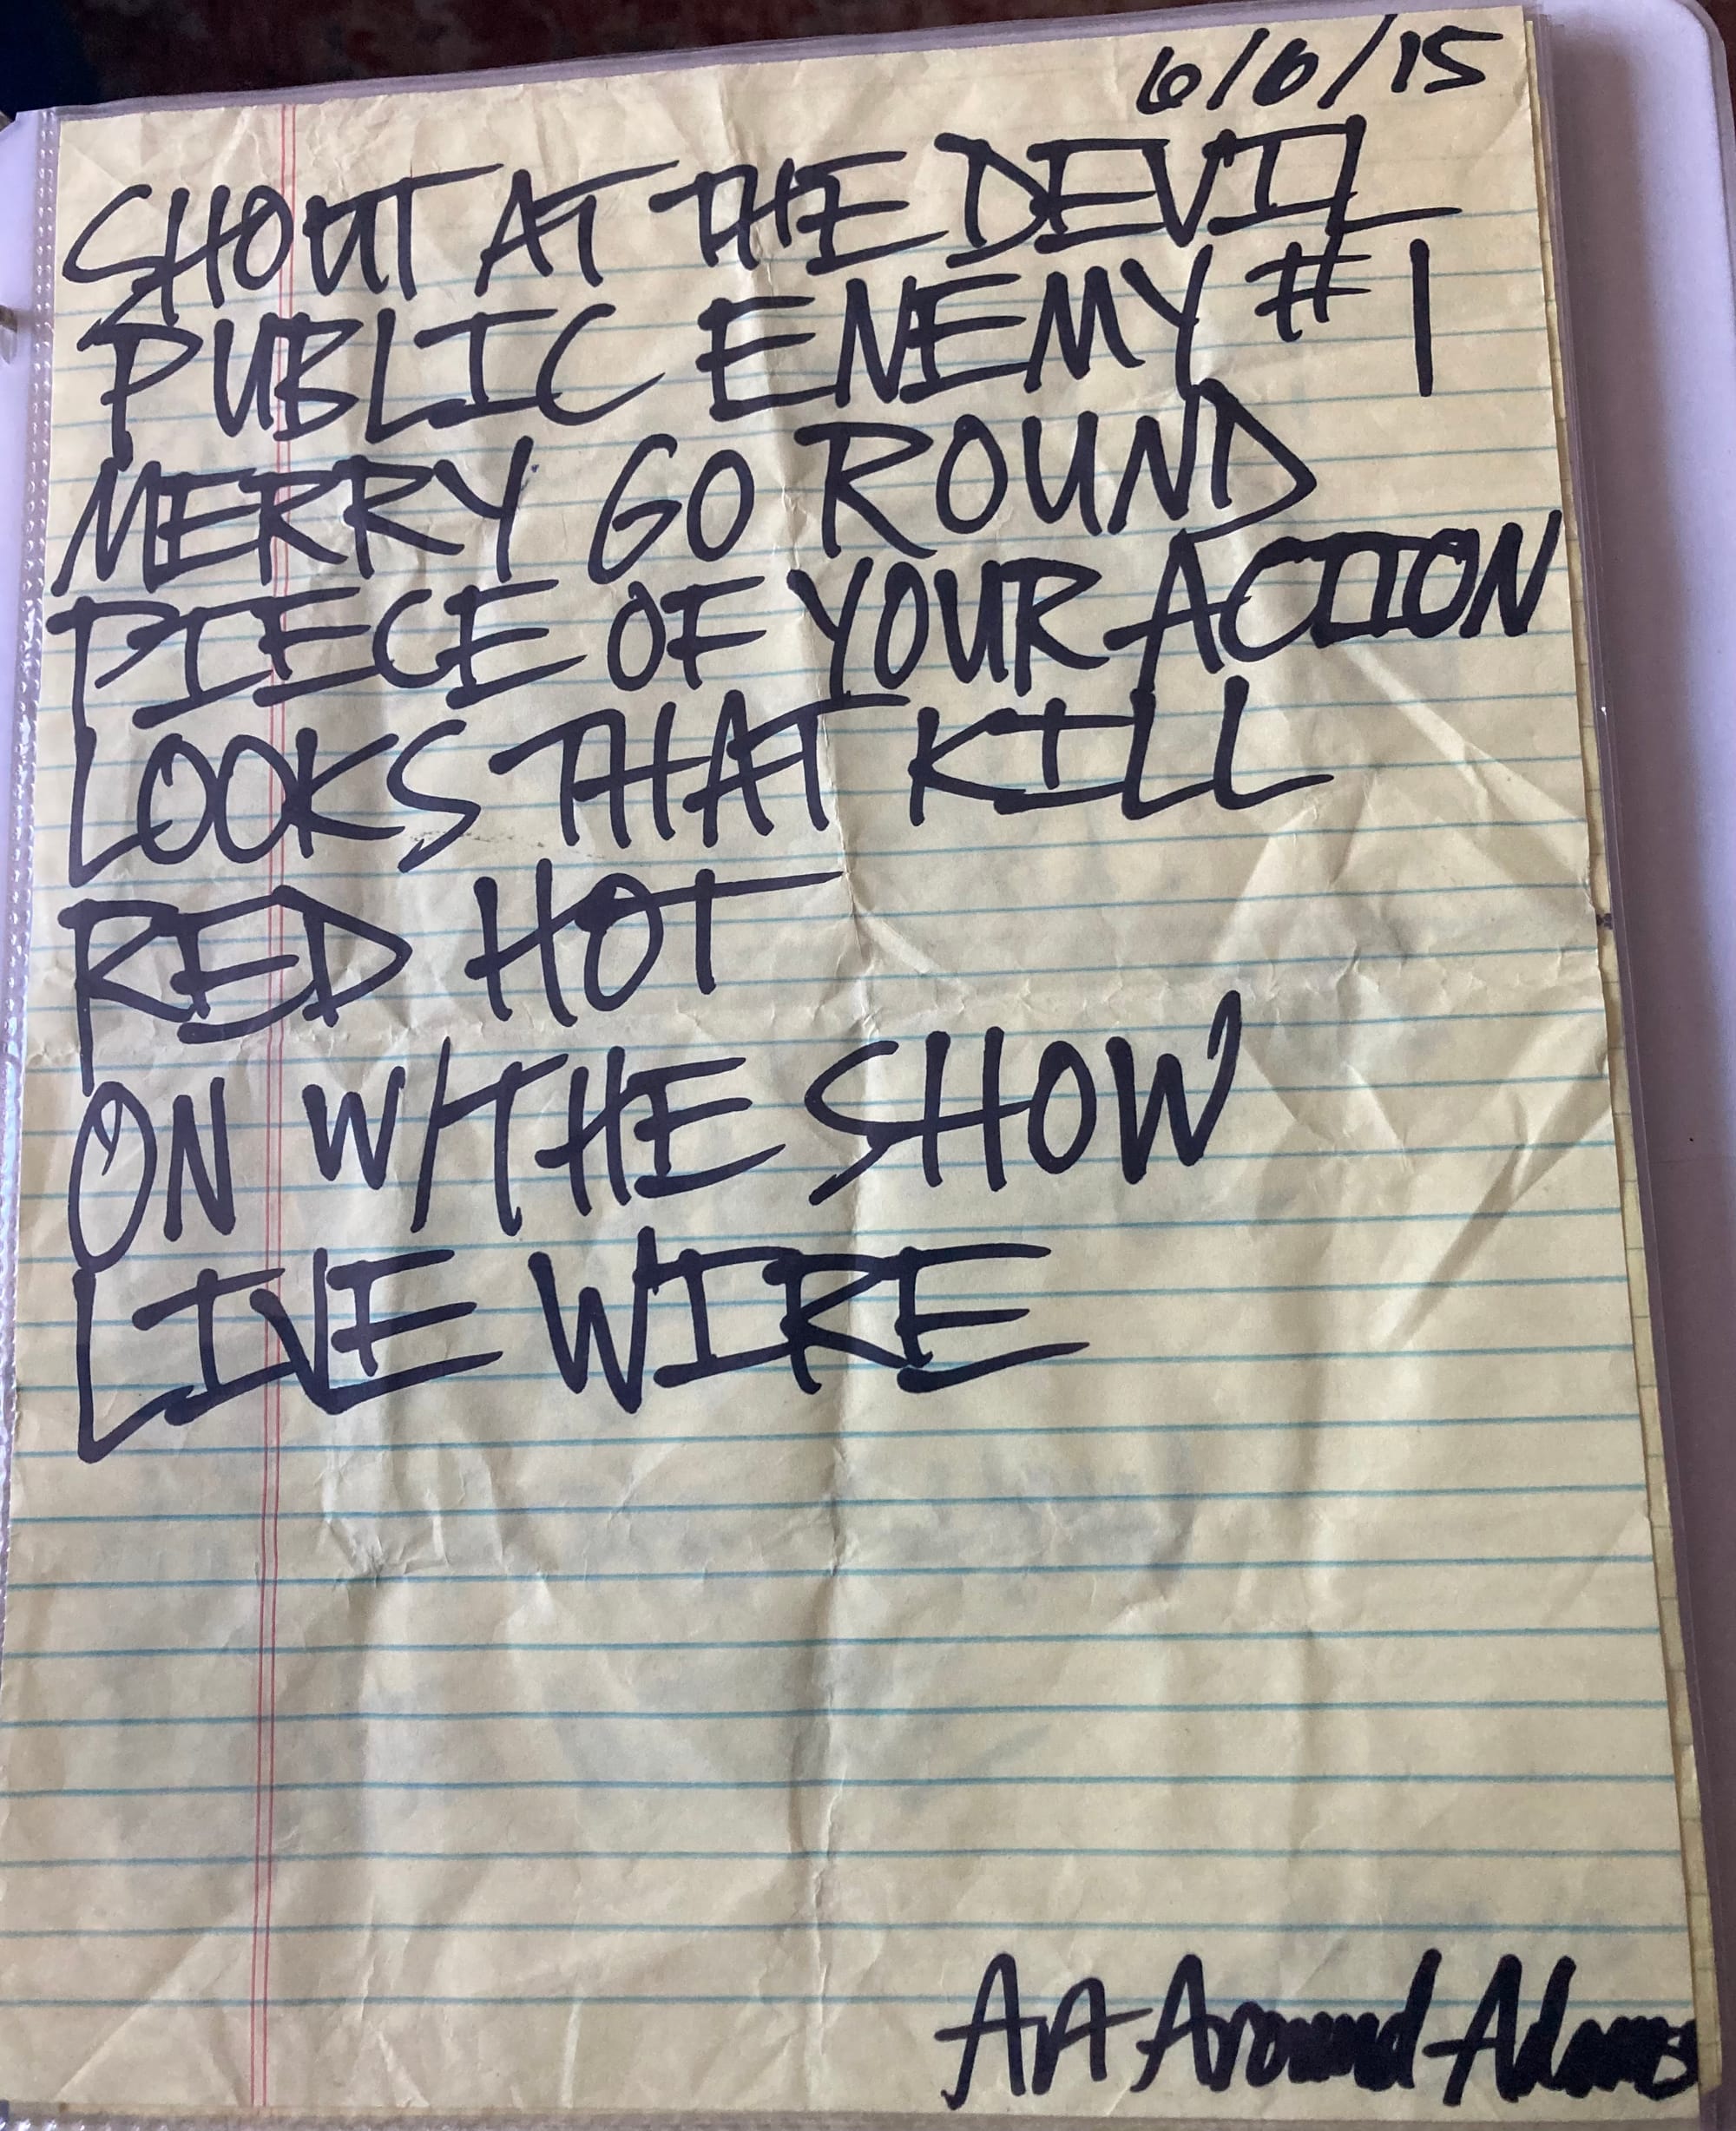 6/6/15
SHOUT AT THE DEVIL
PUBLIC ENEMY #1
MERRY GO ROUND
PIECE OF YOUR ACTION
LOOKS THAT KILL
RED HOT
ON W/THE SHOW
LIVE WIRE
Art Around Adams